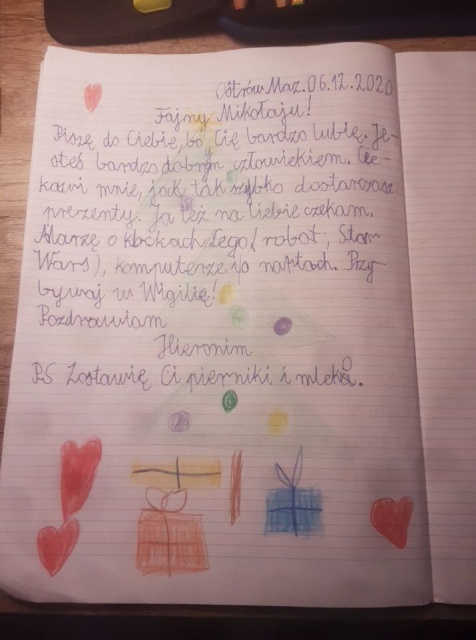 Ostrów Maz. 06.12.2020
Fajny Mikołaju!
Piszę do Ciebie, bo Cię bardzo lubię. Je-
steś bardzo dobrym człowiekiem. Cie-
kawi mnie, jak tak szybko dostarczasz
prezenty. Ja też na Ciebie czekam.
Marzę o klockach Lego (robot, Star
Wars), komputerze i o nartach. Przy-
bywaj w Wigilię!
Pozdrawiam
Hieronim
PS Zostawię Ci pierniki i mleko.